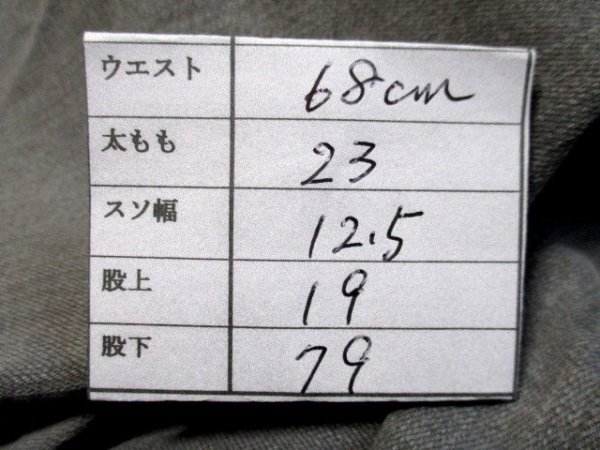 ウエスト 68cm
太もも 23
スソ幅 12.5
股上 19
股下 79